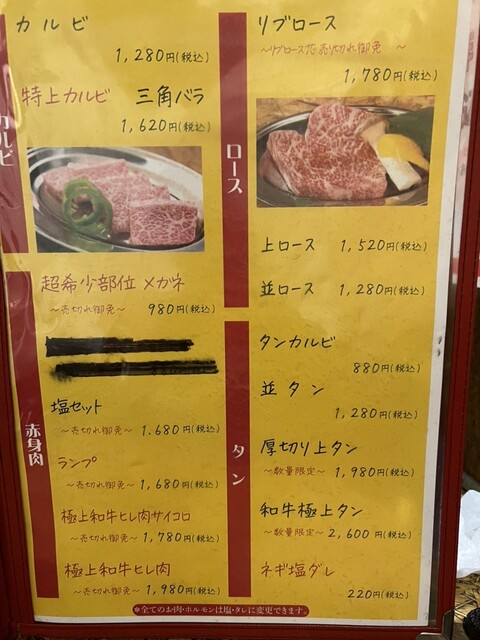 カルビ
カルビ
1,280円(税込)
特上カルビ 三角バラ
1,620円(税込)
赤身肉
超希少部位 メガネ
〜売切れ御免〜 980円(税込)
塩セット
〜売切れ御免〜 1.680円(税込)
ランプ
〜売切れ御免〜 1,680円(税込)
極上和牛ヒレ肉サイコロ
〜売切れ御免〜 1,780円(税込)
極上和牛ヒレ肉
〜売切れ御免〜 1,980円(税込)
ロース
リブロース
〜リブロース芯 売り切れ御免 〜
1,780円(税込)
上ロース 1,520円(税込)
並ロース 1,280円(税込)
タン
タンカルビ
880円(税込)
並タン
1,280円(税込)
厚切り上タン
〜数量限定〜 1,980円(税込)
和牛極上タン
〜数量限定〜 2,600円(税込)
ネギ塩ダレ
220円(税込)
※全てのお肉・ホルモンは塩・タレに変更できます。